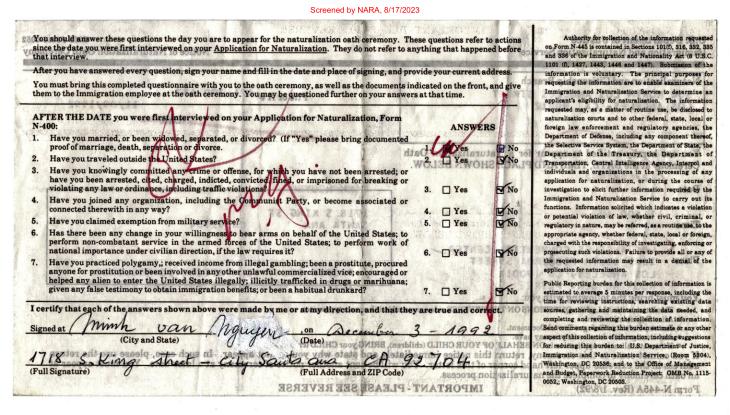 Screened by NARA, 8/17/2023
You should answer these questions the day you are to appear for the naturalization oath ceremony. These questions refer to actions
since the date you were first interviewed on your Application for Naturalization. They do not refer to anything that happened before
that interview.
After you have answered every question, sign your name and fill in the date and place of signing, and provide your current address.
You must bring this completed questionnaire with you to the oath ceremony, as well as the documents indicated on the front, and give
them to the Immigration employee at the oath ceremony. You may be questioned further on your answers at that time.
AFTER THE DATE you were first interviewed on your Application for Naturalization, Form
N-400:
ANSWERS
1. Have you married, or been widowed, separated, or divorced? (If "Yes" please bring documented
proof of marriage, death, separation or divorce.
1. Yes No
2. Have you traveled outside the United States?
2. Yes No
3. Have you knowingly committed any crime or offense, for which you have not been arrested; or
have you been arrested, cited, charged, indicted, convicted, fined, or imprisoned for breaking or
violating any law or ordinance, including traffic violations?
3. Yes No
4. Have you joined any organization, including the Communist Party, or become associated or
connected therewith in any way?
4. Yes No
5. Have you claimed exemption from military service?
5. Yes No
6. Has there been any change in your willingness to bear arms on behalf of the United States; to
perform non-combatant service in the armed forces of the United States; to perform work of
national importance under civilian direction, if the law requires it?
6. Yes No
7. Have you practiced polygamy; received income from illegal gambling; been a prostitute, procured
anyone for prostitution or been involved in any other unlawful commercialized vice; encouraged or
helped any alien to enter the United States illegally; illicitly trafficked in drugs or marihuana;
given any false testimony to obtain immigration benefits; or been a habitual drunkard?
7. Yes No
I certify that each of the answers shown above were made by me or at my direction, and that they are true and correct.
Signed at Minh van Nguyen, on December 3 - 1992
(City and State) (Date)
1718 S. King street - City Santa ana, CA 92704
(Full Signature) (Full Address and ZIP Code)
Authority for collection of the information requested
on Form N-445 is contained in Sections 101(f), 316, 332, 335
and 336 of the Immigration and Nationality Act (8 U.S.C.
1101 (f), 1427, 1443, 1446 and 1447). Submission of the
information is voluntary. The principal purposes for
requesting the information are to enable examiners of the
Immigration and Naturalization Service to determine an
applicant's eligibility for naturalization. The information
requested may, as a matter of routine use, be disclosed to
naturalization courts and to other federal, state, local or
foreign law enforcement and regulatory agencies, the
Department of Defense, including any component thereof,
the Selective Service System, the Department of State, the
Department of the Treasury, the Department of
Transportation, Central Intelligence Agency, Interpol and
individuals and organizations in the processing of any
application for naturalization, or during the course of
investigation to elicit further information required by the
Immigration and Naturalization Service to carry out its
functions. Information solicited which indicates a violation
or potential violation of law, whether civil, criminal, or
regulatory in nature, may be referred, as a routine use, to the
appropriate agency, whether federal, state, local or foreign,
charged with the responsibility of investigating, enforcing or
prosecuting such violations. Failure to provide all or any of
the requested information may result in a denial of the
application for naturalization.
Public Reporting burden for this collection of information is
estimated to average 5 minutes per response, including the
time for reviewing instructions, searching existing data
sources, gathering and maintaining the data needed, and
completing and reviewing the collection of information.
Send comments regarding this burden estimate or any other
aspect of this collection of information, including suggestions
for reducing this burden to: U.S. Department of Justice,
Immigration and Naturalization Service, (Room 5304),
Washington, DC 20536; and to the Office of Management
and Budget, Paperwork Reduction Project: OMB No. 1115-
0052; Washington, DC 20503.
IMPORTANT - PLEASE SEE REVERSE
Form N-445A (Rev. 1/8/92)